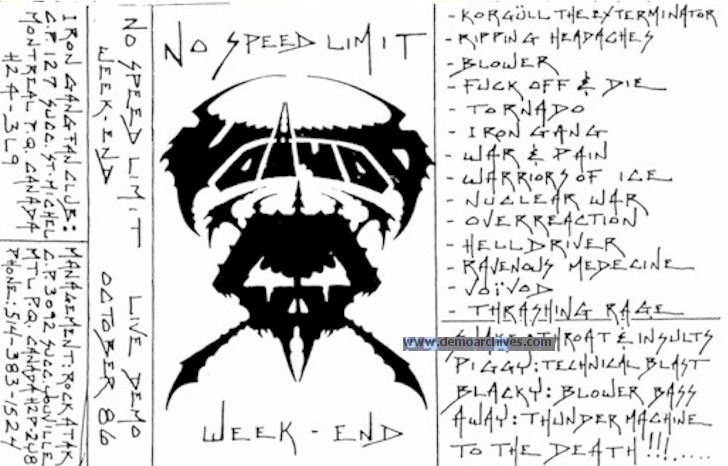 IRON GANG FAN CLUB:
C.P. 127 SUCC. ST. MICHEL
MONTREAL P.Q. CANADA
H2A-3L9
MANAGEMENT: ROCK ATAK
C.P. 3092 SUCC. YOUVILLE
MTL P.Q. CANADA H2P-2V8
PHONE: 514-383-1524
NO SPEED LIMIT
WEEK-END
LIVE DEMO
OCTOBER 86
NO SPEED LIMIT
WEEK-END
- KORGÜLL THE EXTERMINATOR
- RIPPING HEADACHES
- BLOWER
- FUCK OFF & DIE
- TORNADO
- IRON GANG
- WAR & PAIN
- WARRIORS OF ICE
- NUCLEAR WAR
- OVERREACTION
- HELLDRIVER
- RAVENOUS MEDECINE
- VOÏVOD
- THRASHING RAGE
www.demoarchives.com
SNAKE: THROAT & INSULTS
PIGGY: TECHNICAL BLAST
BLACKY: BLOWER BASS
AWAY: THUNDER MACHINE
TO THE DEATH!!!.....